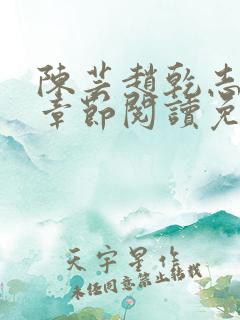 陳芸趙乾志
章節閱讀免
天宇星作
未经同意禁止转载